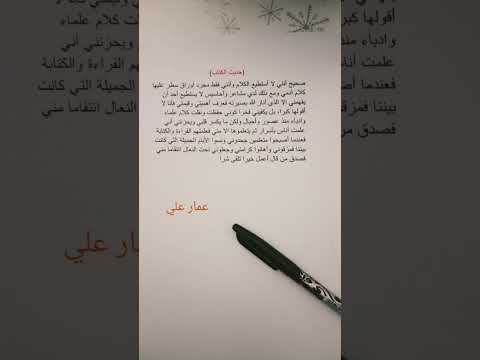 (حديث الكتاب)
صحيح أنني لا أستطيع الكلام وأنني فقط مجرد أوراق سطر عليها
كلام أنمي ومع ذلك لدي مشاعر وأحاسيس لا يستطيع أحد أن
يفهمني إلا الذي أنار الله بصيرته فعرف أهميتي وقيمتي فأنا لا
أقولها كبرا، بل يكفيني فخرا كوني حفظت ونقلت كلام علماء
وأدباء منذ عصور وأجيال ولكن ما يكسر قلبي ويحزنني أني
علمت أناس بأسرار لم يتعلموها الا مني فعلمتهم القراءة والكتابة
فعندما أصبحوا متعلمين جحدوني ونسوا الأيام الجميلة التي كانت
بيننا فمزقوني وأهانوا كرامتي وجعلوني تحت النعال انتقاما مني
فصدق من قال أعمل خيرا تلقى شرا
عمار علي